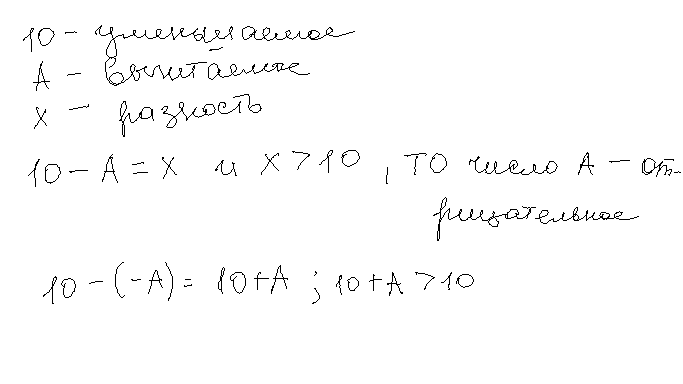 10 - уменьшаемое
А - вычитаемое
х - разность
10 - А = х и х > 10, ТО число А - от-
рицательное
10 - (-А) = 10 + А ; 10 + А > 10